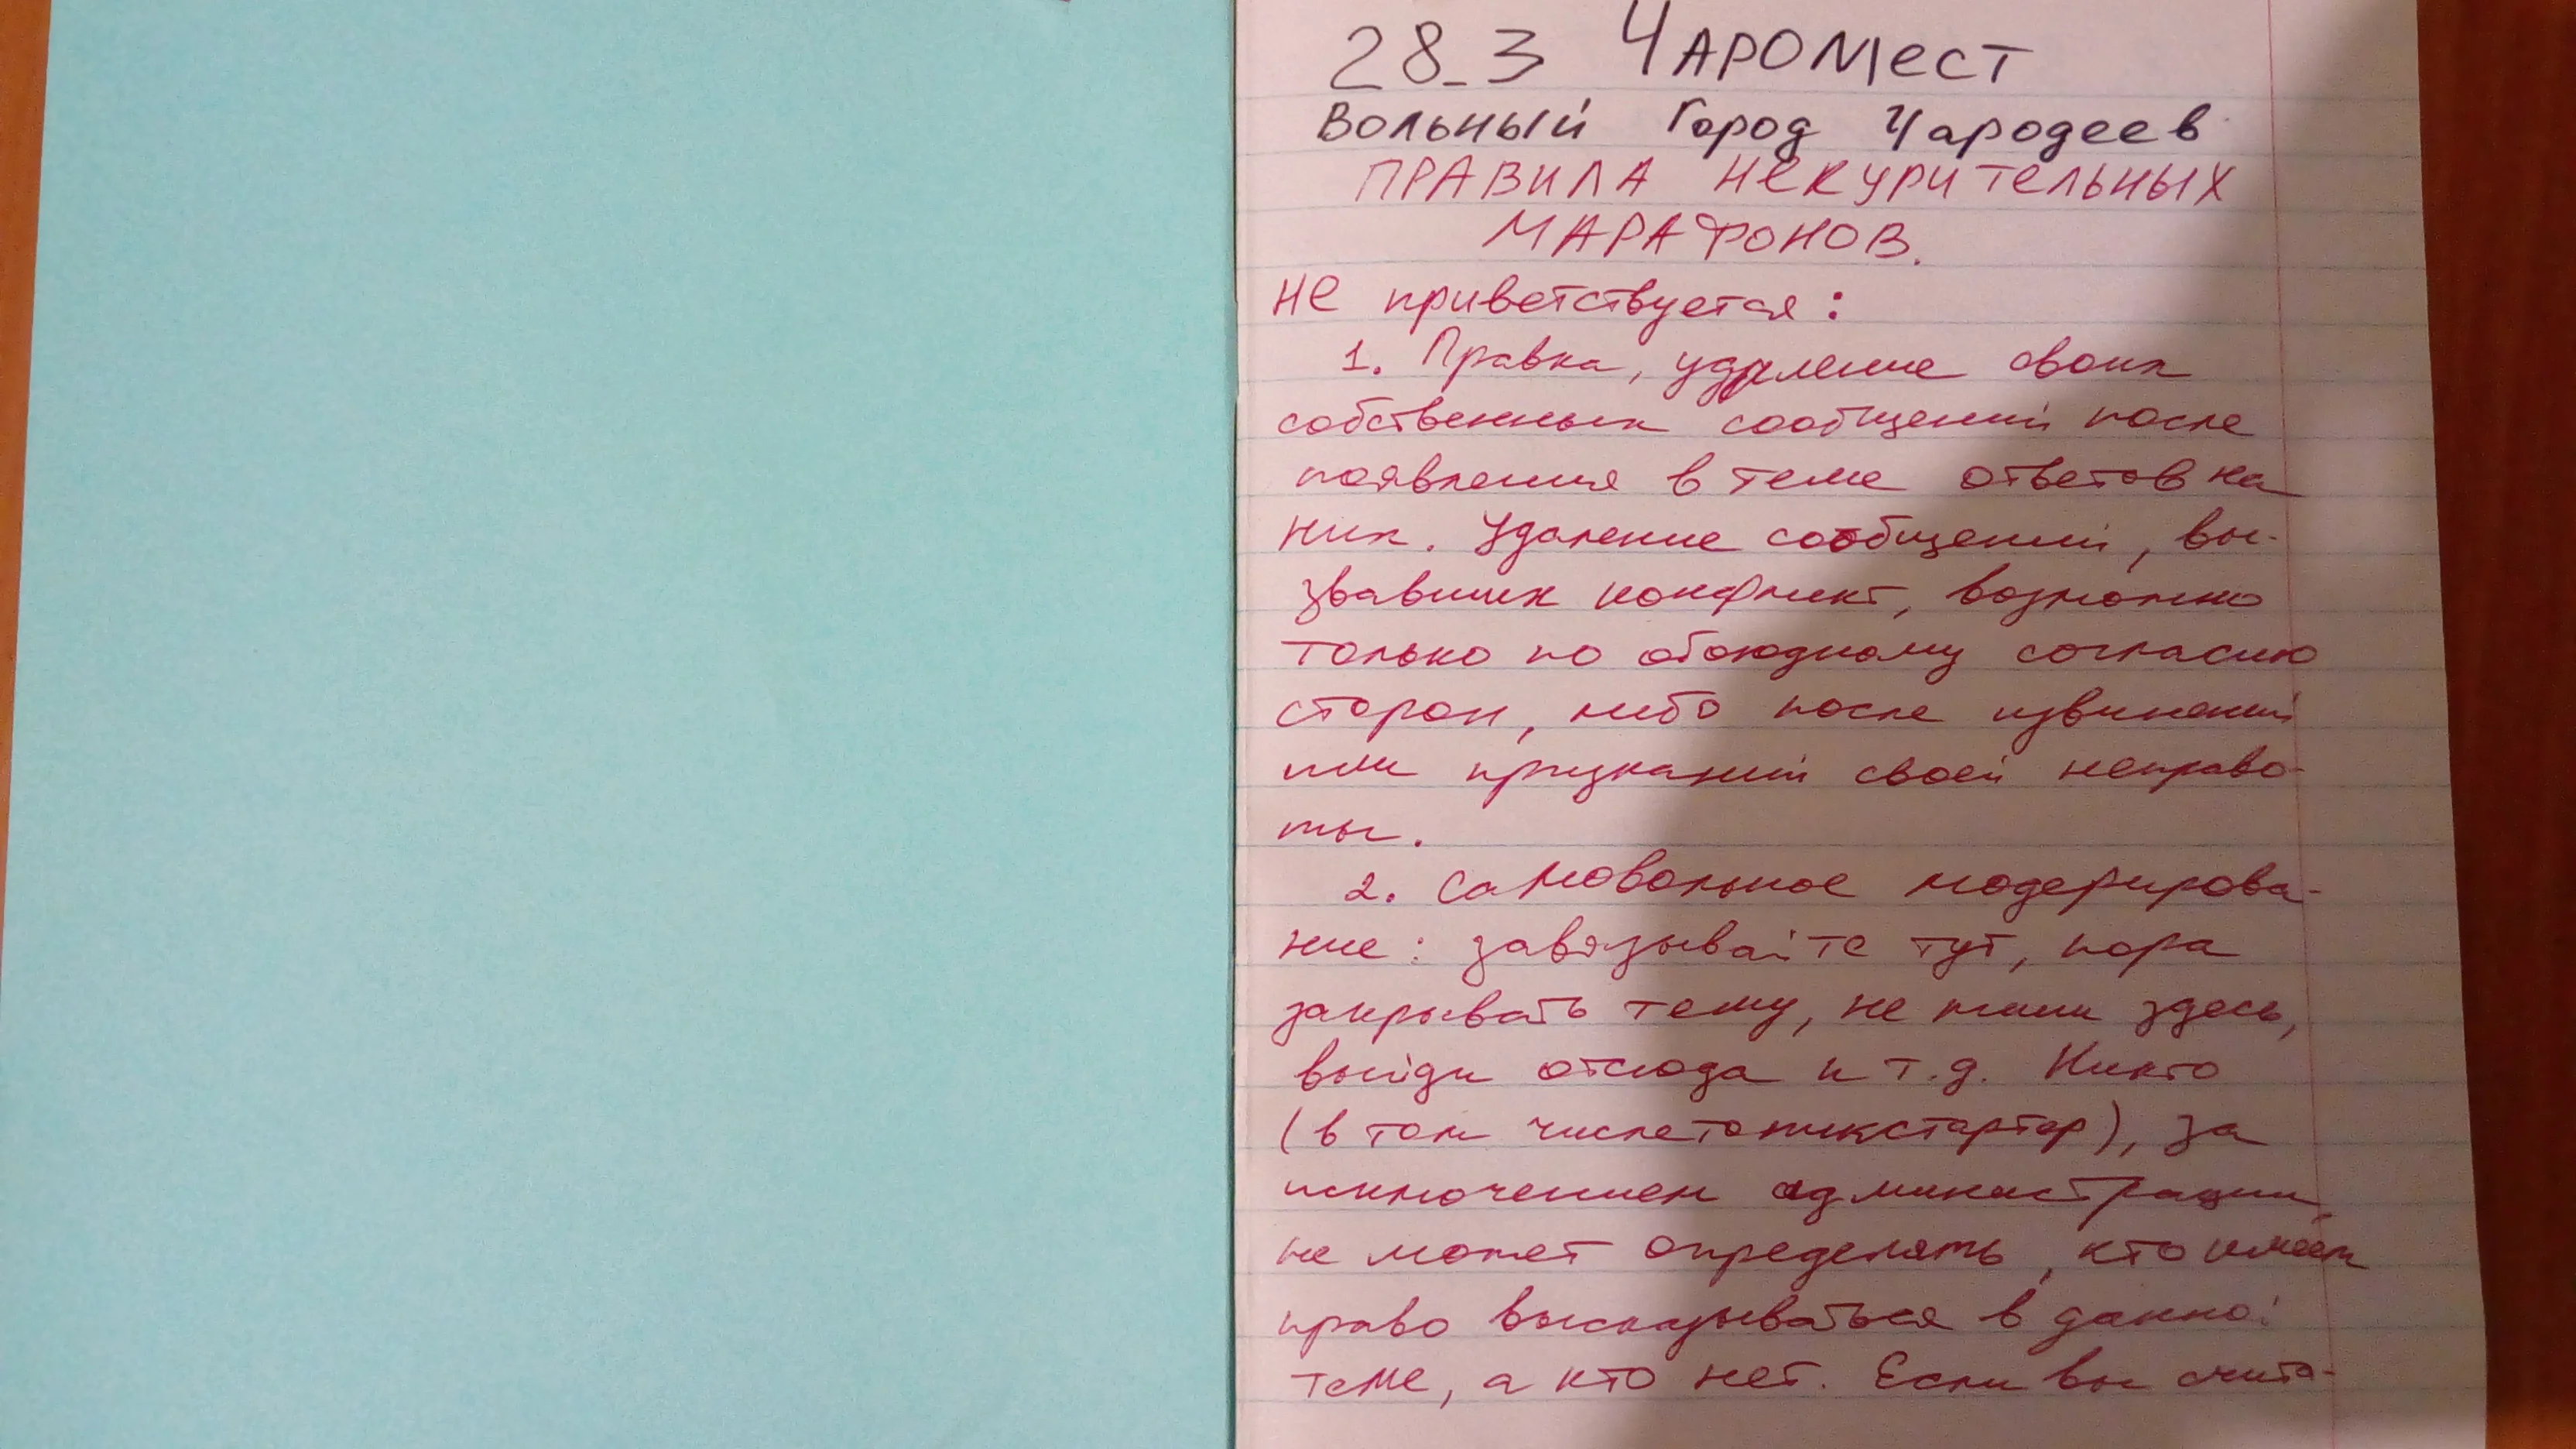 28_3 ЧАРОМЕСТ
Вольный Город Чародеев
ПРАВИЛА НЕКУРИТЕЛЬНЫХ
МАРАФОНОВ.
Не приветствуется:
1. Правка, удаление своих
собственных сообщений после
появления в теме ответов на
них. Удаление сообщений, вы-
звавших конфликт, возможно
только по обоюдному согласию
сторон, либо после извинений
или признаний своей неправо-
ты.
2. Самовольное модерирова-
ние: завязывайте тут, пора
закрывать тему, не пиши здесь,
выйди отсюда и т.д. Никто
(в том числе топикстартер), за
исключением администрации,
не может определять, кто имеет
право высказываться в данной
теме, а кто нет. Если вы счита-